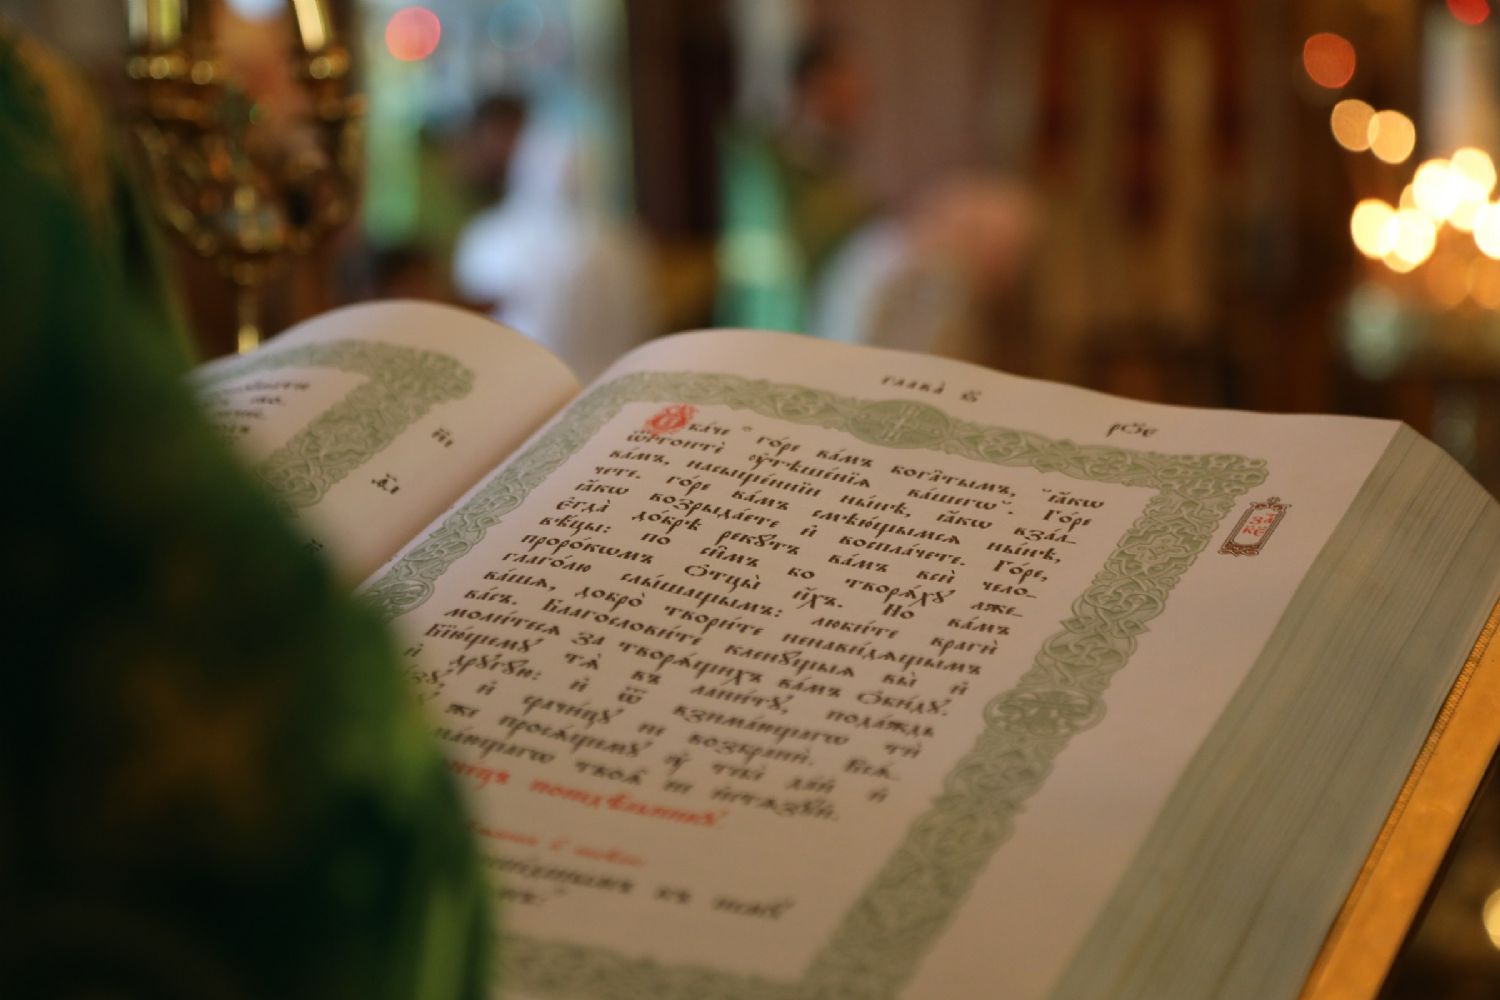 глава̀ ѕ҃
рѯ҃є
Ѻба́че го́ре ва́мъ бога̑тымъ, ꙗ҆́кѡ
ѿстоитѐ ᲂу҆тѣше́нїѧ ва́шегѡ. Го́ре
ва́мъ, насыще́ннїи ны́нѣ, ꙗ҆́кѡ вза́л-
чете. го́ре ва́мъ смѣю́щымсѧ ны́нѣ,
ꙗ҆́кѡ возрыда́ете и҆ воспла́чете. Го́ре,
є҆гда̀ до́брѣ рекꙋ́тъ ва́мъ всѝ чело-
вѣ́цы: по си̑мъ бо творѧ́хꙋ лже-
проро́кѡмъ ѻ҆тцы̀ и҆́хъ. Но ва́мъ
глаго́лю слы́шащымъ: люби́те врагѝ
ва́шѧ, добро̀ твори́те ненави́дѧщымъ
ва́съ. Благослови́те кленꙋ́щыѧ вы̀ и҆
моли́тесѧ за творѧ́щихъ ва́мъ ѻ҆би́дꙋ.
Бїю́щемꙋ тѧ̀ въ лани́тꙋ, пода́ждь
и҆ дрꙋгꙋ́ю: и҆ ѿ взима́ющагѡ тѝ
зꙋ, и҆ срачи́цꙋ не возбранѝ. Всѧ́-
же просѧ́щемꙋ ᲂу҆ тебє̀ да́й: и҆
ма́ющагѡ твоѧ̑ не и҆стѧзꙋ́й.
понедѣльникꙋ
къ немꙋ̀
за
к҃є